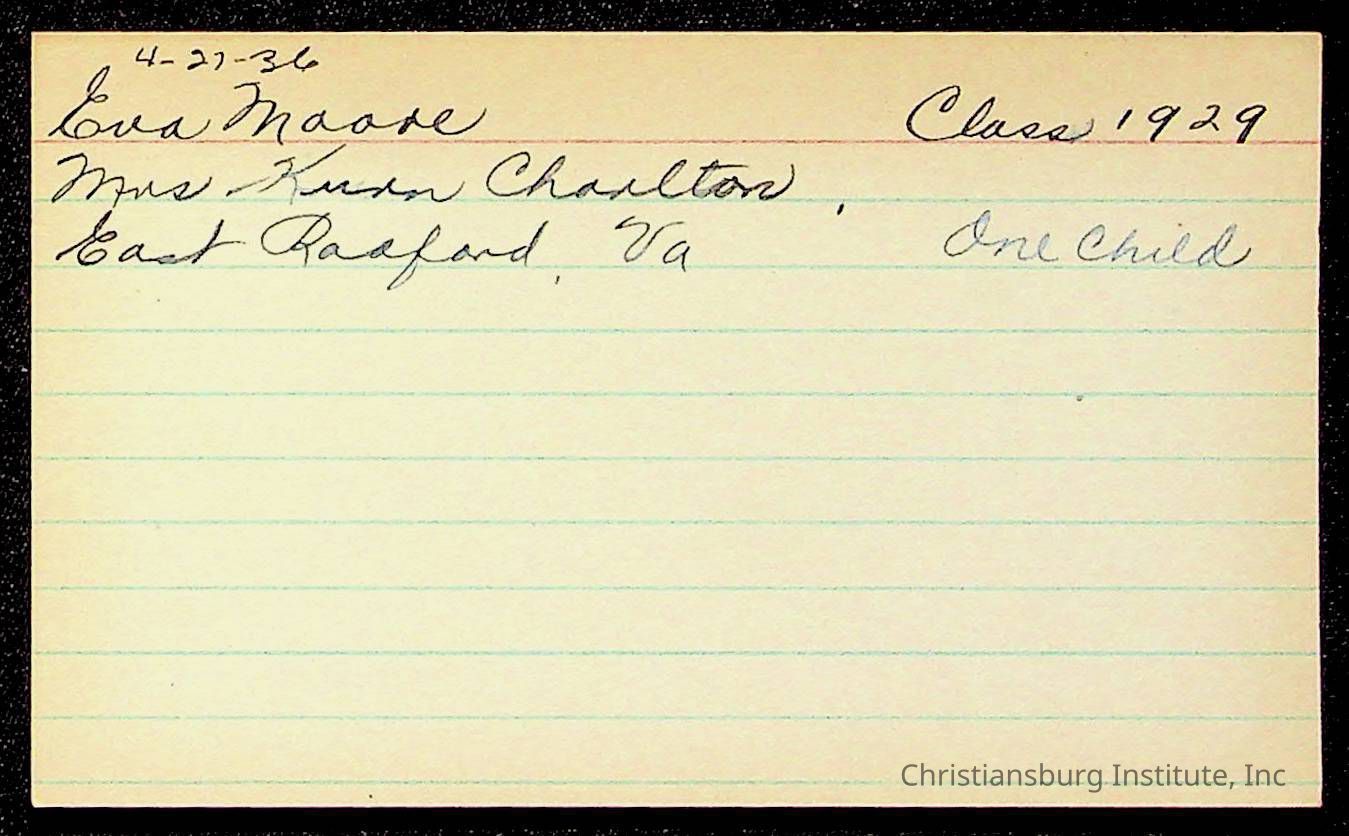 4-27-36
Eva Moore Class 1929
Mrs Charlton,
East Radford, Va One Child
Christiansburg Institute, Inc